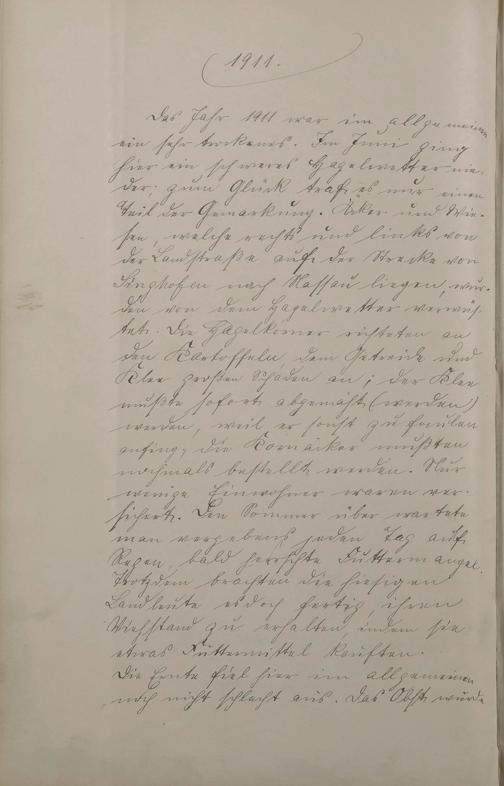 (1911.
Das Jahr 1911 war im allgemeinen
ein sehr trockenes. Im Juni ging
hier ein schweres Hagelwetter nie-
der; zum Glück traf es nur einen
Teil der Gemarkung. Äcker und Wie-
sen, welche rechts und links von
der Landstraße auf der Strecke von
Singhofen nach Nassau liegen, wur-
den von dem Hagelwetter verwüs-
tet. Die Hagelkörner richteten an
den Kartoffeln, dem Getreide und
Klee großen Schaden an; der Klee
mußte sofort abgemäht (werden)
werden, weil er sonst zu faulen
anfing, die Kornäcker mußten
nochmals bestellt werden. Nur
wenige Einwohner waren ver-
sichert. Den Sommer über wartete
man vergebens jeden Tag auf
Regen, bald herrschte Futtermangel.
Trotzdem brachten die hiesigen
Landleute es doch fertig, ihren
Viehstand zu erhalten, indem sie
etwas Futtermittel kauften.
Die Ernte fiel hier im allgemeinen
noch nicht schlecht aus. Das Obst wurde